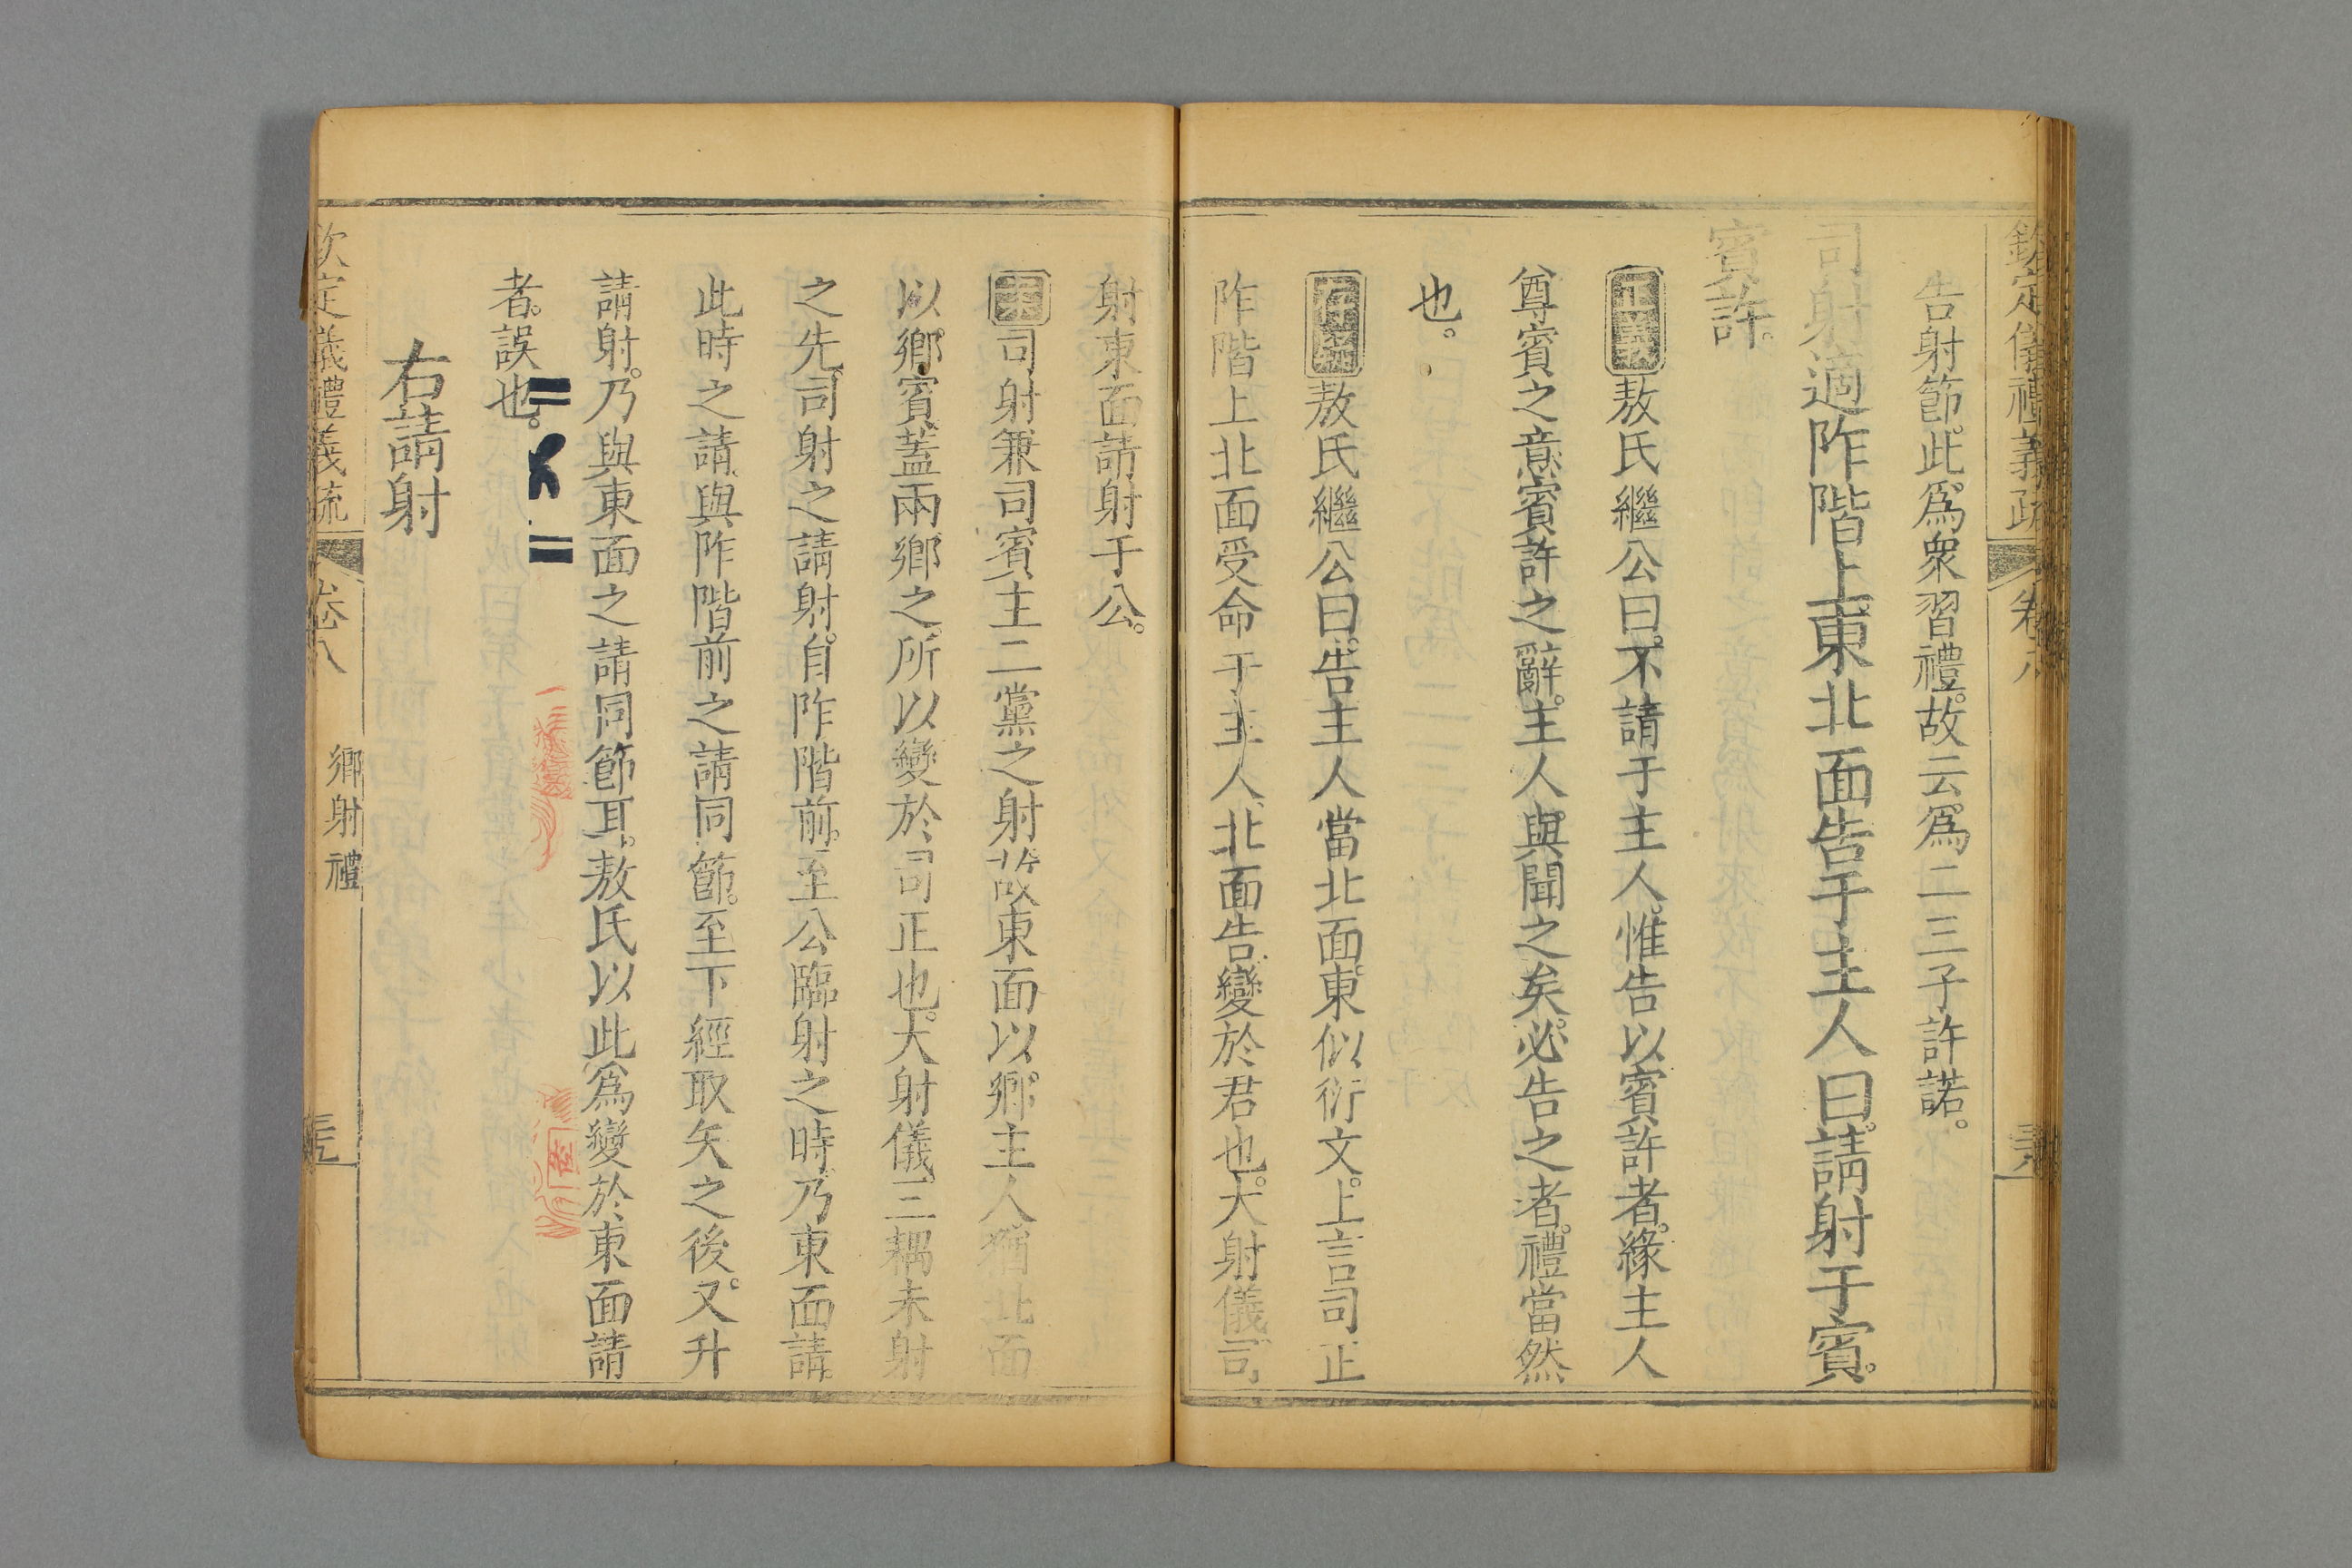 欽定儀禮義疏 卷八
告射節。此爲衆習禮。故云爲二三子許諾。
司射適阼階上東北面告于主人曰。請射于賓。
賓許。
正義敖氏繼公曰。不請于主人。惟告以賓許者。緣主人
尊賓之意。賓許之辭。主人與聞之矣。必告之者。禮當然
也。
存疑敖氏繼公曰。告主人當北面。東似衍文。上言司正
阼階上北面受命于主人。北面告。變於君也。大射儀。司
射東面請射于公。
案司射兼司賓主二黨之射。故東面以鄉主人。猶北面
以鄉賓。蓋兩鄉之。所以變於司正也。大射儀。三耦未射
之先。司射之請射。自阼階前。至公臨射之時。乃東面請。
此時之請。與阼階前之請同節。至下經取矢之後。又升
請射。乃與東面之請同節耳。敖氏以此爲變於東面請
者。誤也。
右請射
欽定儀禮義疏 卷八 鄉射禮